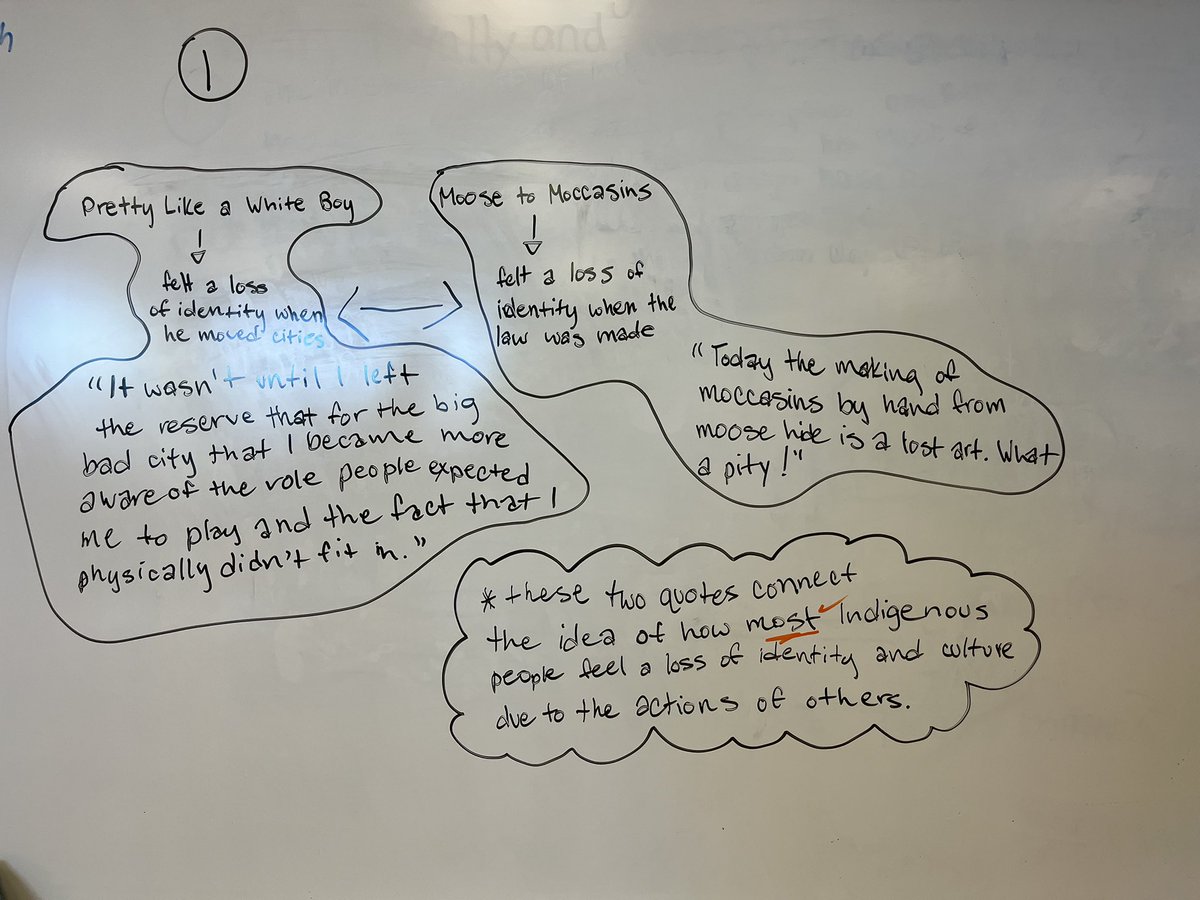 h
1
Pretty Like a White Boy
felt a loss
of identity when
he moved cities
"It wasn't until I left
the reserve that for the big
bad city that I became more
aware of the role people expected
me to play and the fact that I
physically didn't fit in."
Moose to Moccasins
felt a loss of
identity when the
law was made
"Today the making of
moccasins by hand from
moose hide is a lost art. What
a pity!"
* these two quotes connect
the idea of how most Indigenous
people feel a loss of identity and culture
due to the actions of others.
ally and